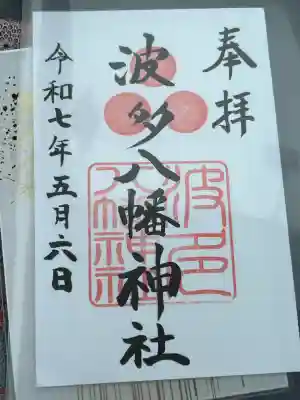 奉拝
波多八幡神社
令和七年五月六日
波多
八幡神社